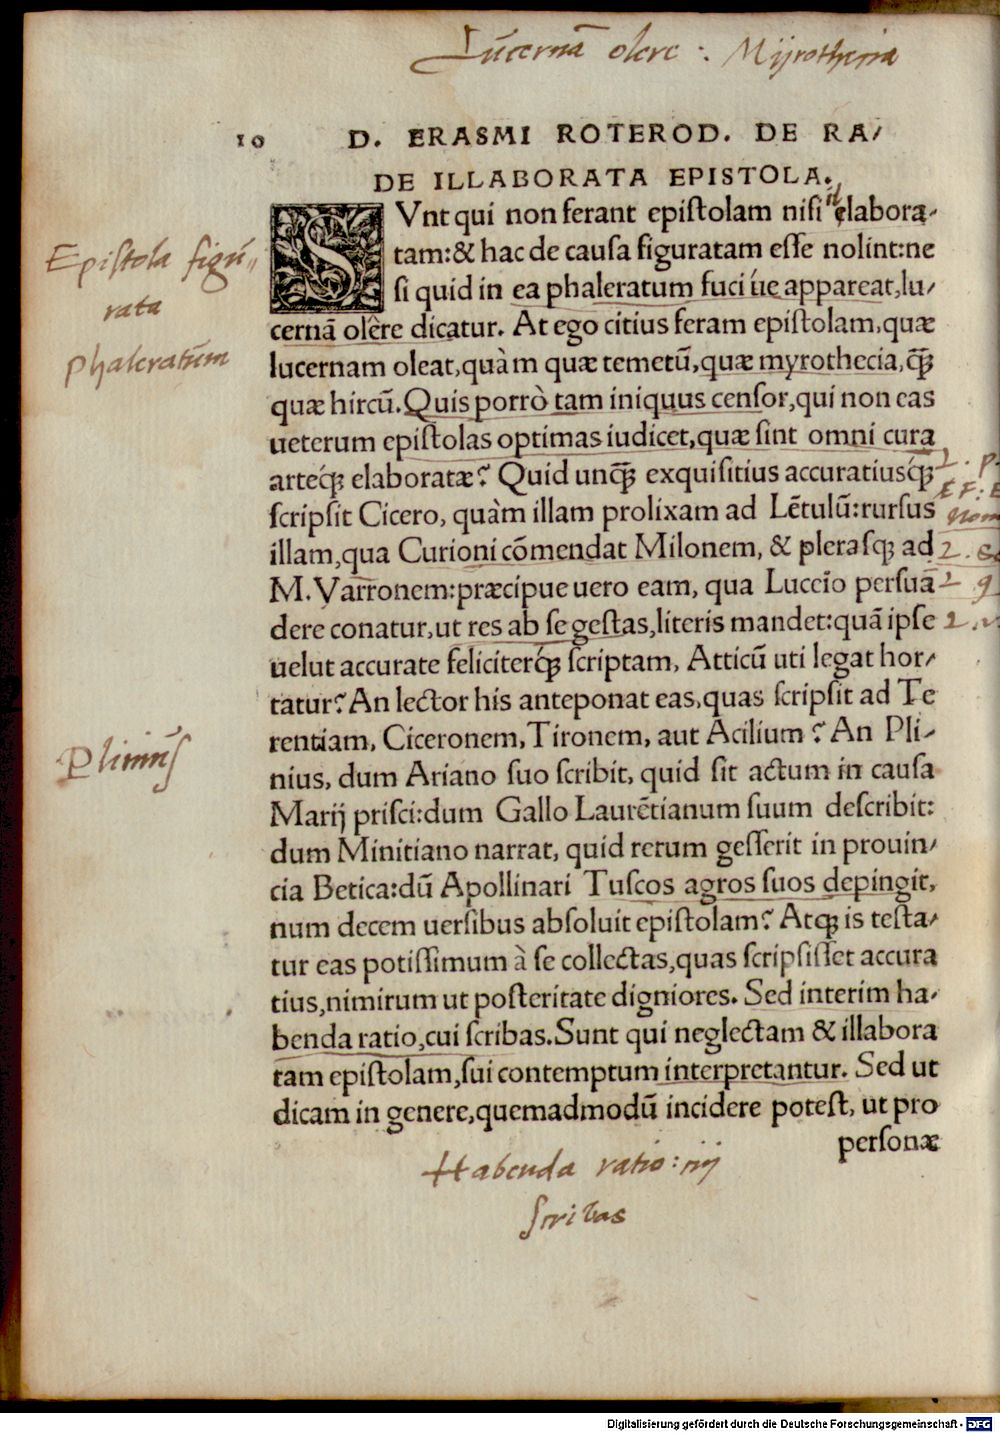 Lucernā olere : Myrothecia
10 D. ERASMI ROTEROD. DE RA/
DE ILLABORATA EPISTOLA.
SVnt qui non ferant epistolam nisi il elabora-
tam:& hac de causa figuratam esse nolint:ne
si quid in ea phaleratum fuci úe appareat,lu/
cernā olêre dicatur. At ego citius feram epistolam,quæ
lucernam oleat,quàm quæ temetū,quæ myrothecia,q̃ꝫ
quæ hircū.Quis porrò tam iniquus censor,qui non eas
ueterum epistolas optimas iudicet,quæ sint omni cura
arteq́ꝫ elaboratæ? Quid unq̃ꝫ exquisitius accuratiusq́ꝫ
scripsit Cicero, quàm illam prolixam ad Lētulū:rursus
illam,qua Curioni cōmendat Milonem, & plerasqꝫ ad
M. Varronem:præcipue uero eam, qua Lucceio persuā
dere conatur,ut res ab se gestas,literis mandet:quā ipse
uelut accurate feliciterq́ꝫ scriptam, Atticū uti legat hor/
tatur? An lector his anteponat eas,quas scripsit ad Te
rentiam, Ciceronem,Tironem, aut Acilium? An Pli-
nius, dum Ariano suo scribit, quid sit actum in causa
Marij prisci:dum Gallo Laurētianum suum describit:
dum Minitiano narrat, quid rerum gesserit in prouin/
cia Betica:dū Apollinari Tuscos agros suos depingit,
num decem uersibus absoluit epistolam? Atqꝫ is testa/
tur eas potissimum à se collectas,quas scripsisset accura
tius,nimirum ut posteritate digniores. Sed interim ha-
benda ratio,cui scribas.Sunt qui neglectam & illabora
tam epistolam,sui contemptum interpretantur. Sed ut
dicam in genere,quemadmodū incidere potest, ut pro
personæ
Epistola figū/
rata
phaleratum
Plinius
Habenda ratio: cui
scribas
Digitalisierung gefördert durch die Deutsche Forschungsgemeinschaft - DFG